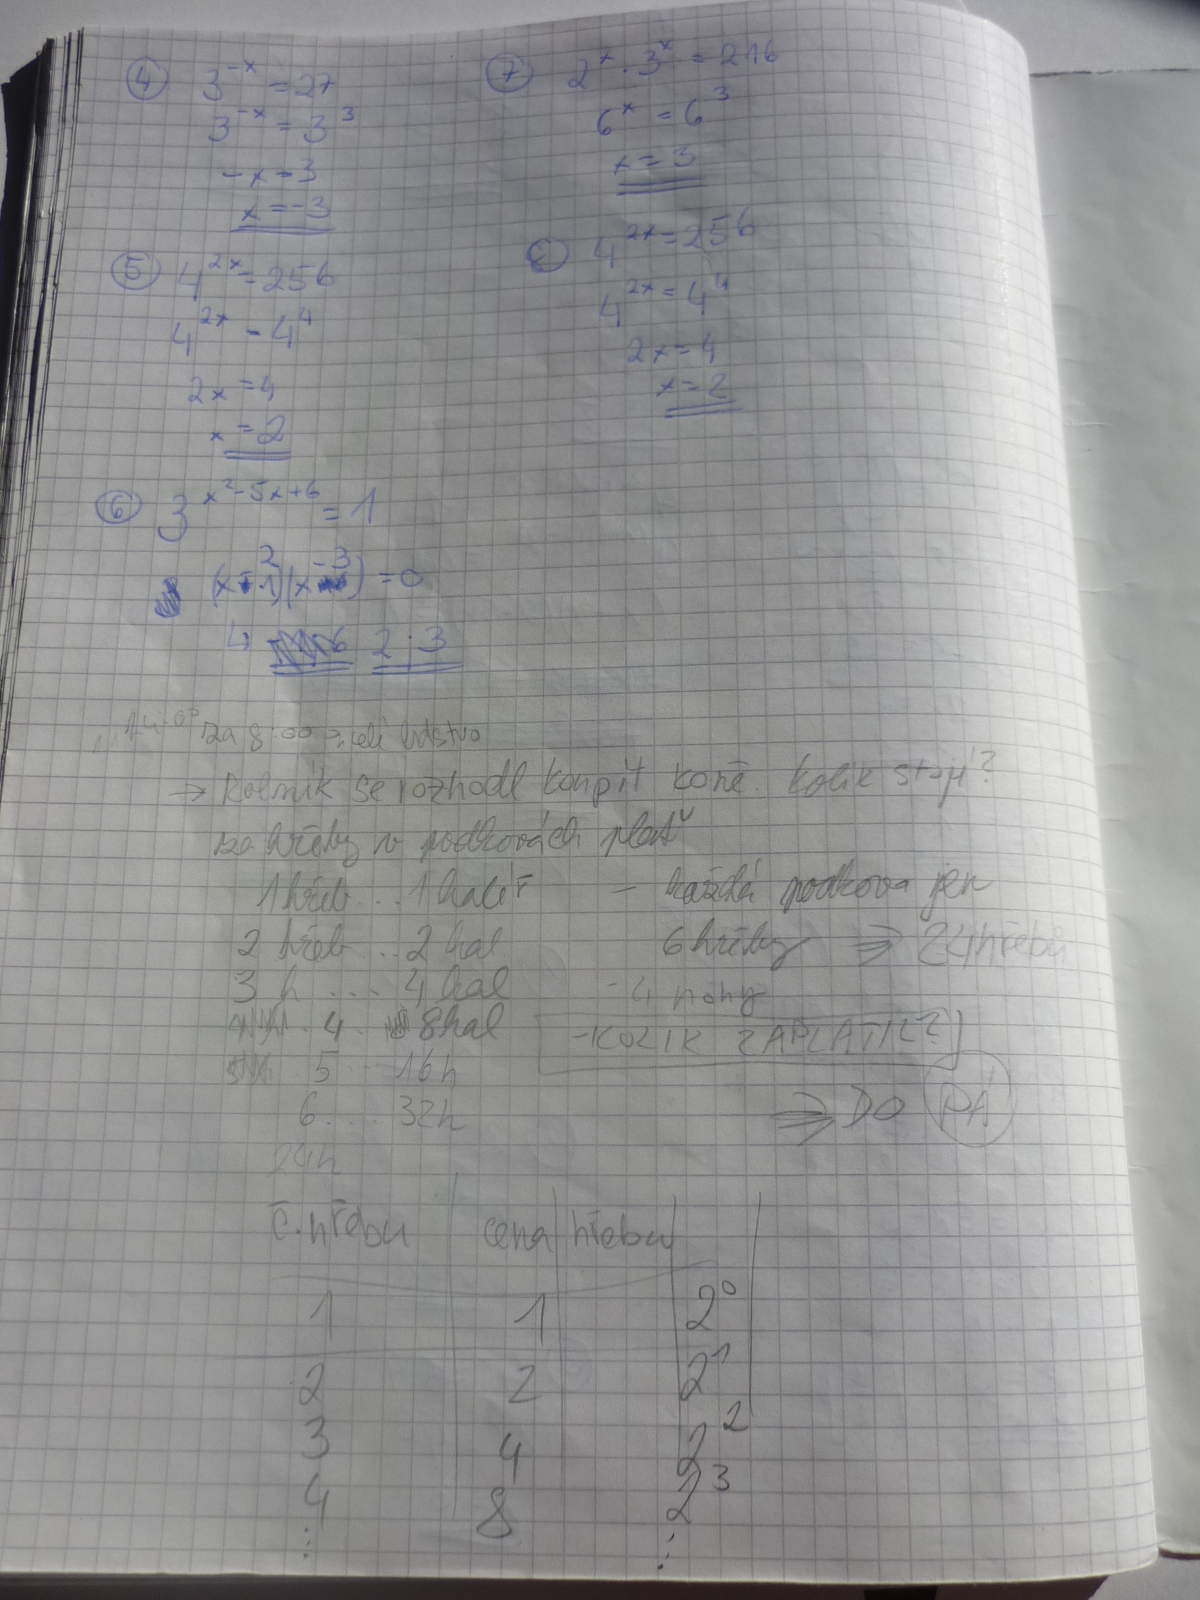 ④ 3^-x = 27
3^-x = 3^3
-x = 3
x = -3
⑤ 4^2x = 256
4^2x = 4^4
2x = 4
x = 2
⑥ 3^x²-5x+6 = 1
(x-2)(x-3) = 0
2 3
⑦ 2^x · 3^x = 216
6^x = 6^3
x = 3
4^2x = 256
4^2x = 4^4
2x = 4
x = 2
za 8:00
→ Rolník se rozhodl koupit koně. Kolik stojí?
za hřeby v podkovách plať
1 hřeb ... 1 haléř - každá podkova jen
2 hřeb ... 2 hal 6 hřeby ⇒ 24 hřebů
3 h .... 4 hal - 4 nohy
4 .. 8 hal - KOLIK ZAPLATIL?
5 ... 16 h
6 .... 32 h ⇒ DO PÁ
24 h
č. hřebu cena hřebu
1 1 2^0
2 2 2^1
3 4 2^2
4 8 2^3
⋮ ⋮